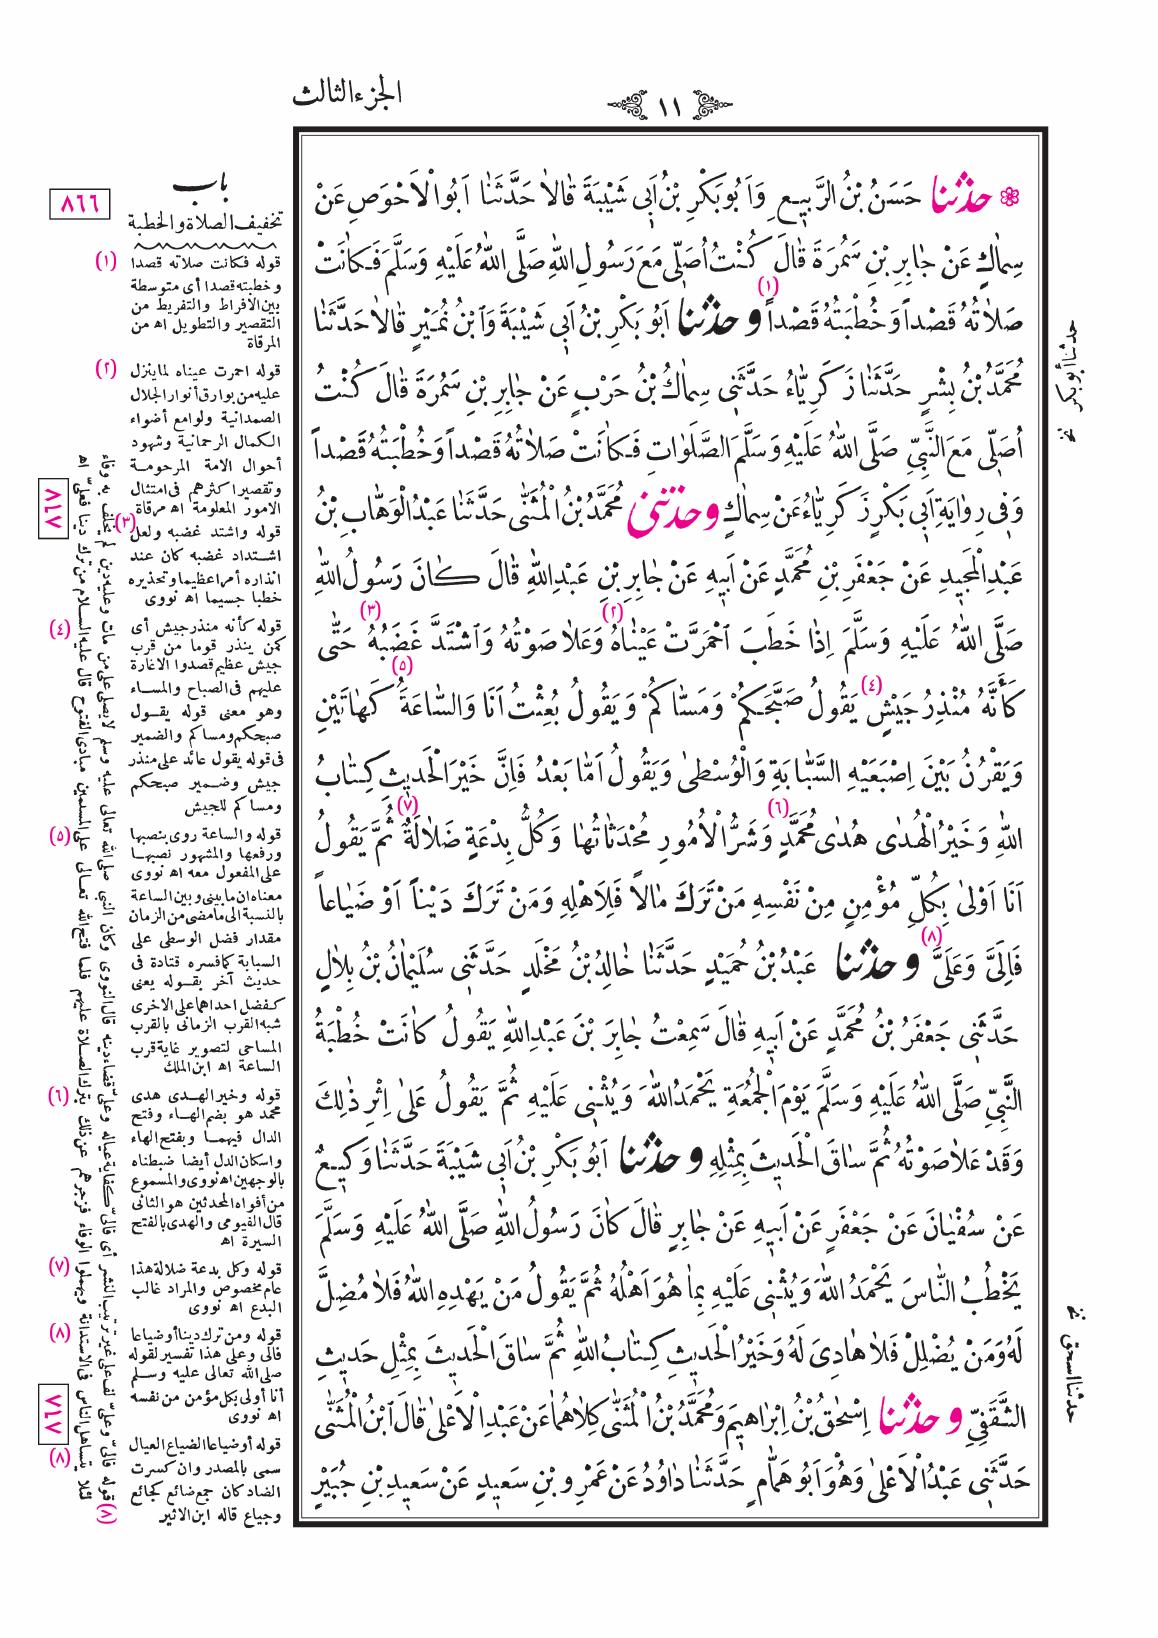 الجزء الثالث
١١
حدثنا حَسَنُ بْنُ الرَّبِيعِ وَاَبُو بَكْرِ بْنُ اَبِي شَيْبَةَ قَالَا حَدَّثَنَا اَبُوالْاَحْوَصِ عَنْ
سِمَاكٍ عَنْ جَابِرِ بْنِ سَمُرَةَ قَالَ كُنْتُ اُصَلِّي مَعَ رَسُولِ اللهِ صَلَّى اللهُ عَلَيْهِ وَسَلَّمَ فَكَانَتْ
صَلَاتُهُ قَصْداً وَخُطْبَتُهُ قَصْداً (١) و حدثنا اَبُو بَكْرِ بْنُ اَبِي شَيْبَةَ وَابْنُ نُمَيْرٍ قَالَا حَدَّثَنَا
مُحَمَّدُ بْنُ بِشْرٍ حَدَّثَنَا زَكَرِيَّاءُ حَدَّثَنِي سِمَاكُ بْنُ حَرْبٍ عَنْ جَابِرِ بْنِ سَمُرَةَ قَالَ كُنْتُ
اُصَلِّي مَعَ النَّبِيِّ صَلَّى اللهُ عَلَيْهِ وَسَلَّمَ الصَّلَوَاتِ فَكَانَتْ صَلَاتُهُ قَصْداً وَخُطْبَتُهُ قَصْداً
وَفِي رِوَايَةِ اَبِي بَكْرٍ زَكَرِيَّاءُ عَنْ سِمَاكٍ وحدثني مُحَمَّدُ بْنُ الْمُثَنَّى حَدَّثَنَا عَبْدُ الْوَهَّابِ بْنُ
عَبْدِ الْمَجِيدِ عَنْ جَعْفَرِ بْنِ مُحَمَّدٍ عَنْ اَبِيهِ عَنْ جَابِرِ بْنِ عَبْدِاللهِ قَالَ كَانَ رَسُولُ اللهِ
صَلَّى اللهُ عَلَيْهِ وَسَلَّمَ اِذَا خَطَبَ احْمَرَّتْ عَيْنَاهُ (٢) وَعَلَا صَوْتُهُ وَاشْتَدَّ غَضَبُهُ (٣) حَتَّى
كَأَنَّهُ مُنْذِرُ جَيْشٍ (٤) يَقُولُ صَبَّحَكُمْ وَمَسَّاكُمْ وَيَقُولُ بُعِثْتُ اَنَا وَالسَّاعَةُ (٥) كَهَاتَيْنِ
وَيَقْرُنُ بَيْنَ اِصْبَعَيْهِ السَّبَّابَةِ وَالْوُسْطَى وَيَقُولُ اَمَّا بَعْدُ فَاِنَّ خَيْرَ الْحَدِيثِ كِتَابُ
اللهِ وَخَيْرُ الْهُدَى هُدَى مُحَمَّدٍ (٦) وَشَرُّ الْاُمُورِ مُحْدَثَاتُهَا وَكُلُّ بِدْعَةٍ ضَلَالَةٌ (٧) ثُمَّ يَقُولُ
اَنَا اَوْلَى بِكُلِّ مُؤْمِنٍ مِنْ نَفْسِهِ مَنْ تَرَكَ مَالاً فَلِاَهْلِهِ وَمَنْ تَرَكَ دَيْناً اَوْ ضَيَاعاً
فَاِلَيَّ وَعَلَيَّ (٨) و حدثنا عَبْدُ بْنُ حُمَيْدٍ حَدَّثَنَا خَالِدُ بْنُ مَخْلَدٍ حَدَّثَنِي سُلَيْمَانُ بْنُ بِلَالٍ
حَدَّثَنِي جَعْفَرُ بْنُ مُحَمَّدٍ عَنْ اَبِيهِ قَالَ سَمِعْتُ جَابِرَ بْنَ عَبْدِاللهِ يَقُولُ كَانَتْ خُطْبَةُ
النَّبِيِّ صَلَّى اللهُ عَلَيْهِ وَسَلَّمَ يَوْمَ الْجُمُعَةِ يَحْمَدُ اللهَ وَيُثْنِي عَلَيْهِ ثُمَّ يَقُولُ عَلَى اِثْرِ ذٰلِكَ
وَقَدْ عَلَا صَوْتُهُ ثُمَّ سَاقَ الْحَدِيثَ بِمِثْلِهِ و حدثنا اَبُو بَكْرِ بْنُ اَبِي شَيْبَةَ حَدَّثَنَا وَكِيعٌ
عَنْ سُفْيَانَ عَنْ جَعْفَرٍ عَنْ اَبِيهِ عَنْ جَابِرٍ قَالَ كَانَ رَسُولُ اللهِ صَلَّى اللهُ عَلَيْهِ وَسَلَّمَ
يَخْطُبُ النَّاسَ يَحْمَدُ اللهَ وَيُثْنِي عَلَيْهِ بِمَا هُوَ اَهْلُهُ ثُمَّ يَقُولُ مَنْ يَهْدِهِ اللهُ فَلَا مُضِلَّ
لَهُ وَمَنْ يُضْلِلْ فَلَا هَادِيَ لَهُ وَخَيْرُ الْحَدِيثِ كِتَابُ اللهِ ثُمَّ سَاقَ الْحَدِيثَ بِمِثْلِ حَدِيثِ
الثَّقَفِيِّ و حدثنا اِسْحٰقُ بْنُ اِبْرَاهِيمَ وَمُحَمَّدُ بْنُ الْمُثَنَّى كِلَاهُمَا عَنْ عَبْدِ الْاَعْلَى قَالَ ابْنُ الْمُثَنَّى
حَدَّثَنِي عَبْدُ الْاَعْلَى وَهُوَ اَبُو هَمَّامٍ حَدَّثَنَا دَاوُدُ عَنْ عَمْرِو بْنِ سَعِيدٍ عَنْ سَعِيدِ بْنِ جُبَيْرٍ
حدثنا أبو بكر نخ
حدثنا اسحق نخ
باب
٨٦٦
تخفيف الصلاة والخطبة
(١) قوله فكانت صلاته قصدا
وخطبته قصدا أى متوسطة
بين الافراط والتفريط من
التقصير والتطويل اه من
المرقاة
(٢) قوله احمرت عيناه لما ينزل
عليه من بوارق أنوار الجلال
الصمدانية ولوامع أضواء
الكمال الرحمانية وشهود
أحوال الامة المرحومة
وتقصير اكثرهم فى امتثال
الامور المعلومة اه مرقاة
(٣) قوله واشتد غضبه ولعل
اشتداد غضبه كان عند
انذاره أمرا عظيما وتحذيره
خطبا جسيما اه نووى
(٤) قوله كأنه منذر جيش أى
كمن ينذر قوما من قرب
جيش عظيم قصدوا الاغارة
عليهم فى الصباح والمساء
وهو معنى قوله يقول
صبحكم ومساكم والضمير
فى قوله يقول عائد على منذر
جيش وضمير صبحكم
ومساكم للجيش
(٥) قوله والساعة روى بنصبها
ورفعها والمشهور نصبها
على المفعول معه اه نووى
معناه ان ما بينى وبين الساعة
بالنسبة الى ما مضى من الزمان
مقدار فضل الوسطى على
السبابة كما فسره قتادة فى
حديث آخر بقوله يعنى
كفضل احداهما على الاخرى
شبه القرب الزمانى بالقرب
المساحى لتصوير غاية قرب
الساعة اه ابن الملك
(٦) قوله وخير الهدى هدى
محمد هو بضم الهاء وفتح
الدال فيهما وبفتح الهاء
واسكان الدل أيضا ضبطناه
بالوجهين اه نووى والمسموع
من أفواه المحدثين هو الثانى
قال الفيومى والهدى بالفتح
السيرة اه
(٧) قوله وكل بدعة ضلالة هذا
عام مخصوص والمراد غالب
البدع اه نووى
(٨) قوله ومن ترك دينا أو ضياعا
فالى وعلى هذا تفسير لقوله
صلى الله تعالى عليه وسلم
أنا أولى بكل مؤمن من نفسه
اه نووى
قوله أو ضياعا الضياع العيال
سمى بالمصدر وان كسرت
الضاد كان جمع ضائع كجائع
وجياع قاله ابن الاثير
(٨) قوله فالىّ وعلىّ لف على غير ترتيب النشر أى فالىّ كفاية عياله وعلىّ قضاء دينه قال النووى وكان النبى صلى الله تعالى عليه وسلم لا يصلى على من مات وعليه دين لم يخلف به وفاء
(٨) لئلا يتساهل الناس فى الاستدانة ويهملوا الوفاء فزجرهم عن ذلك بترك الصلاة عليهم فلما فتح الله تعالى على المسلمين مبادى الفتوح قال عليه السلام من ترك دينا فعلىّ اه
٨٤٧
٧٤٧